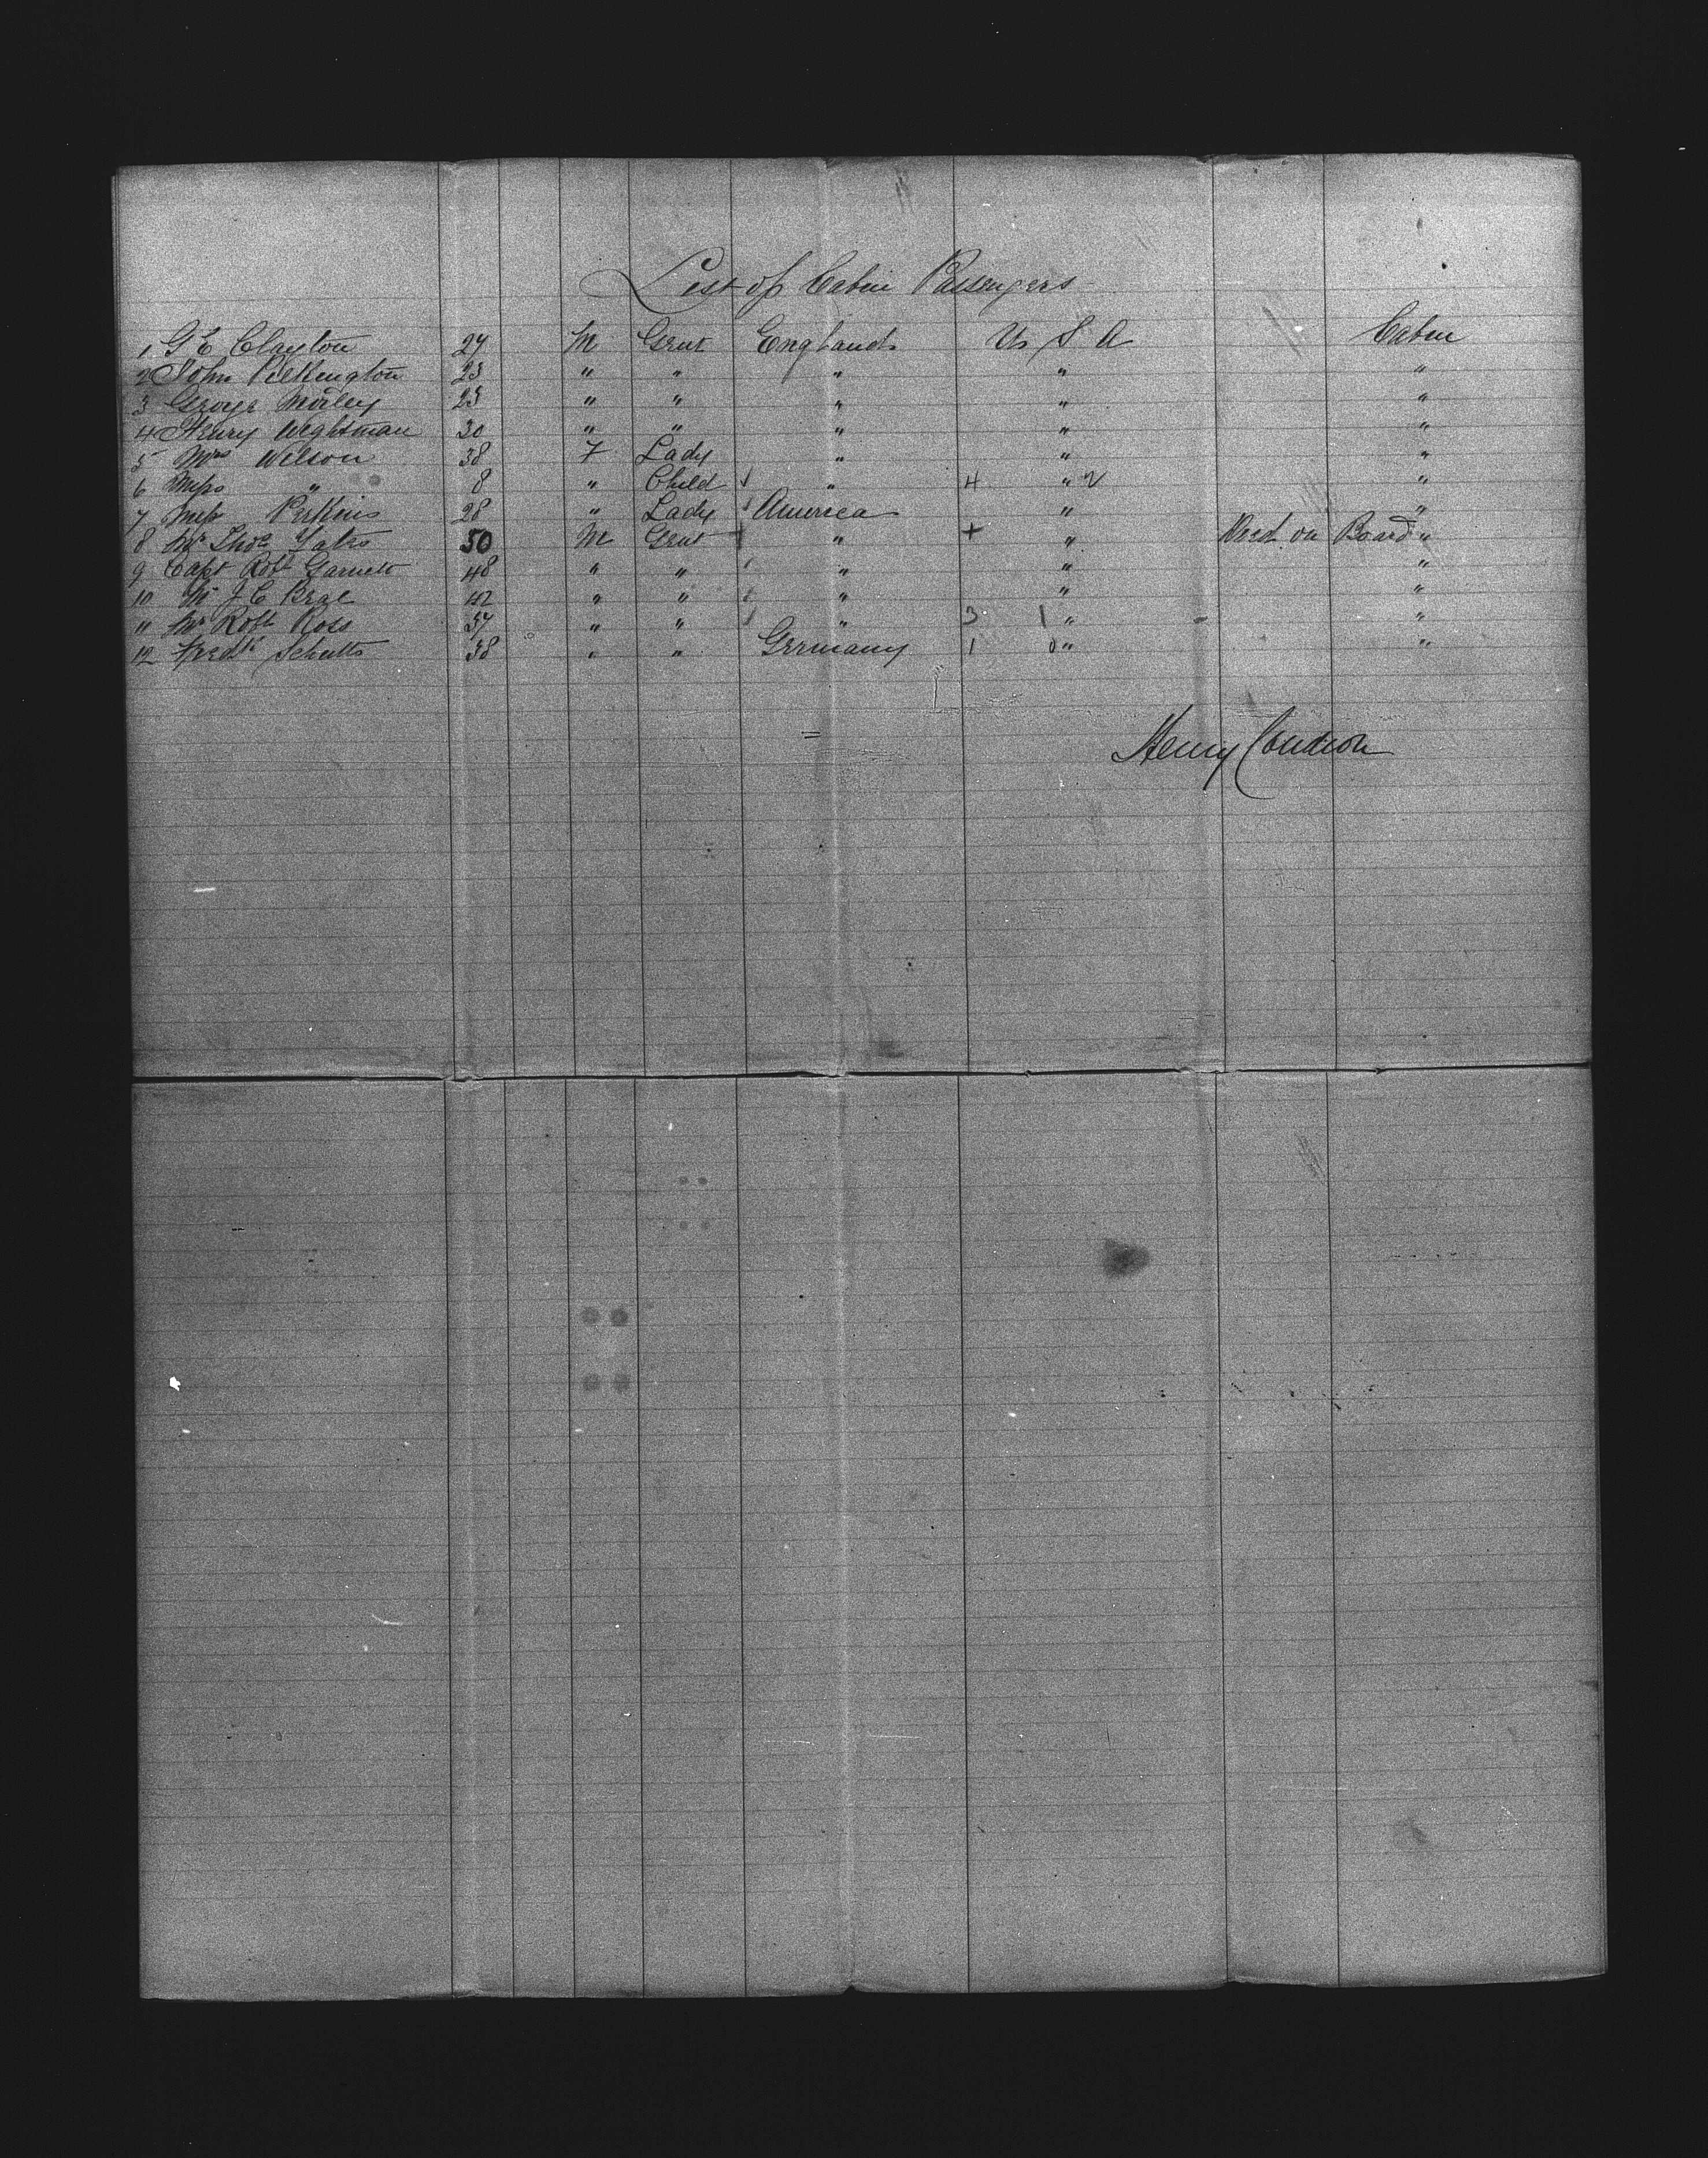 List of Cabin Passengers
1 G E Clayton 27 M Gent England U S A Cabin
2 John Pilkington 23 " " " " "
3 George Morley 23 " " " " "
4 Henry Weghtman 30 " " " " "
5 Mrs Wilson 38 F Lady " " "
6 Miss " 8 " Child " 4 " 2 "
7 Miss Perkins 28 " Lady America " "
8 Mr Thos Yates 50 M Gent " + " Died on Board "
9 Capt Robt Garnett 48 " " " " "
10 Mr J C Brae 42 " " " " "
" Mr Robt Ross 37 " " " 3 1 " "
12 Fredk Schults 38 " " Germany 1 0 " "
Henry